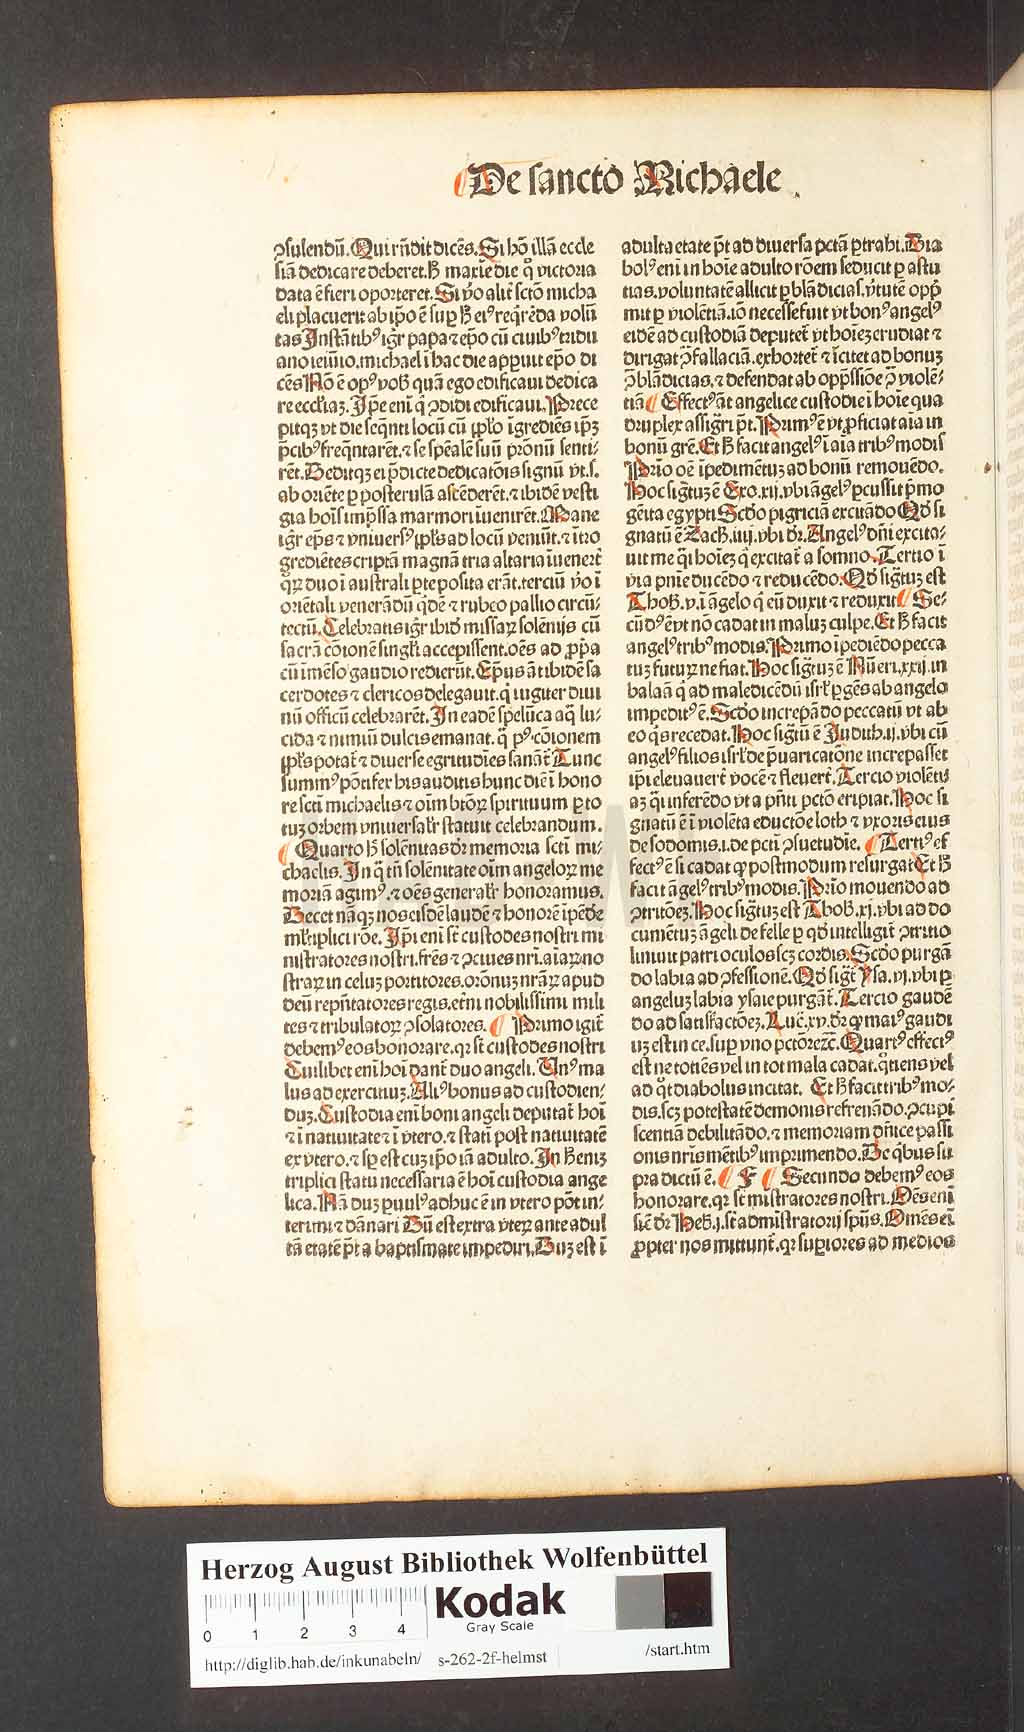 De sancto Michaele
ꝯsulendū. Qui rñdit dicēs. Si hoīm illā eccle
siā dedicare deberet. hͦ maxīe die qͦ victoria
data ē fieri oporteret. Si vͦo alit̄ sctō micha
eli placuerit ab ipͦo ē suꝑ hͦ eiꝰ reqͥrēda volū
tas Instātibꝰ igͥr papa ⁊ epͦo cū ciuibꝰ tridu
ano ieiunio. michael ī hac die apꝑuit epͦo di
cēs Nō ē opꝰ vob̄ quā ego edificaui dedica
re eccliaꝫ. Ipͥe enī qͥ ꝯdidi edificaui. Prece
pitqꝫ vt die seqn̄ti locū cū pplͦo īgrediēs ipꝫ
pͥcibꝰ freqn̄tarēt. ⁊ se sp̄ealē suū pr̄onū senti-
rēt. Deditqꝫ ei p̄dicte dedicatōis signū vt. s.
ab oriēte ꝑ posterulā ascēderēt. ⁊ ibidē vesti
gia hoīs imp̄ssa marmori īuenirēt. Mane
igr̄ ep̄s ⁊ vniuersꝰ ppl̄s ad locū veniūt. ⁊ ītro
gredientes criptā magnā tria altaria īuenerūt
qͦꝝ duo ī australi ꝑte posita erāt. terciū vͦo ī
oriētali venerādū qͥdē ⁊ rubeo pallio circū-
tectū. Celebratis igr̄ ibid̄ missaꝝ solēnijs cū
sacrā cōionē singl̄i accepissent. oēs ad ꝓpͥa
cū īmēso gaudio redierūt. Epūs āt ibidē sa
cerdotes ⁊ clericos delegauit. qͥ iugiter diui
nū officiū celebrarēt. In eadē spelūca aqͣ lu-
cida ⁊ nimiū dulcis emanat. qͣ pꝰ cōionem
ppl̄s potat̄ ⁊ diuerse egritudīes sanāt̄ Tunc
summꝰ pōtifex his auditis hunc diē ī hono
re scti michaelis ⁊ oīm btōꝝ spirituum ꝑ to
tuꝫ orbem vniuersalr̄ statuit celebrandum.
Quarto hͦ solēnitas dr̄ memoria scti mi-
chaelis. In qͣ tn̄ solēnitate oīm angeloꝝ me
moriā agimꝰ. ⁊ oēs generalr̄ honoramus.
Decet nāqꝫ nos eisdē laudē ⁊ honorē īpēde
ml̄tiplici rōe. Ipͥi enī st̄ custodes nostri mi
nistratores nostri. fr̄es ⁊ ꝯciues nr̄i. aīaꝝ no
straꝝ in celuꝫ portitores. orōnuꝫ nr̄aꝝ apud
deū repn̄tatores regis. et̄ni nobilissimi mili
tes ⁊ tribulatoꝝ ꝯsolatores. Primo igit̄
debemꝰ eos honorare. qr̄ st̄ custodes nostri
Cuilibet enī hoī dant̄ duo angeli. Unꝰ ma
lus ad exercitiuꝫ. Aliꝰ bonus ad custodien-
duꝫ. Custodia enī boni angeli deputat̄ hoī
⁊ ī natiuitate ⁊ ī vtero. ⁊ stati post natiuitatē
ex vtero. ⁊ sp̄ est cuꝫ ipͦo iā adulto. In heniꝫ
triplici statu necessaria ē hoī custodia ange
lica. Nā duꝫ ꝑuulꝰ adhuc ē in vtero pōt in-
terimi ⁊ dānari Dū est extra vteꝝ ante adul
tā etatē pōt a baptismate impediri. Duꝫ est ī
adulta etate pōt ad diuersa pctā ꝑtrahi. Dia
bolꝰ enī in hoīe adulto rōem seducit ꝑ astu
tias. voluntatē allicit ꝑ blādicias. vͥtutē oppͥ
mit ꝑ violētiā. iō necesse fuit vt bonꝰ angelꝰ
eidē ad custodiā deputet̄ vt hoīeꝫ erudiat ⁊
dirigat ꝯ fallaciā. exhortet̄ ⁊ īcitet ad bonuꝫ
ꝯ blādicias. ⁊ defendat ab opp̄ssiōe ꝯ violē-
tiā Effectꝰ āt angelice custodie ī hoīe qua
druplex assigͣri pōt. Primꝰ ē vt ꝓficiat aīa in
bonū grē. Et hͦ facit angelꝰ ī aīa tribꝰ modis
Prīo oē īpedimētuꝫ ad bonū remouēdo.
Hoc sigͣtuꝫ ē Exo. xij. vbi āgelꝰ ꝑcussit pͥmo
gēita egypti Scdͦo pigriciā excutādo Qd̄ si
gnatū ē Zach. iiij. vbi dr̄. Angelꝰ dn̄i excita-
uit me qͣsi hoīeꝫ qͥ excitat̄ a somno. Tertio ī
via pnīe ducēdo ⁊ reducēdo. Qd̄ sigͣtuꝫ est
Thob. v. ī āgelo qͥ eū duxit ⁊ reduxit Se-
cūdꝰ ē vt nō cadat in maluꝫ culpe. Et hͦ facit
angelꝰ tribꝰ modis. Primo īpediēdo pecca
tuꝫ futuꝝ ne fiat. Hoc sigͣtuꝫ ē Nūeri. xxij. in
balaā qͥ ad maledicēdū isrl̄ ꝑgēs ab angelo
impeditꝰ ē. Scdͦo increpādo peccatū vt ab
eo qͥs recedat. Hoc sigͣtū ē Judith. ij. vbi cū
angelꝰ filios isrl̄ de p̄uaricatōne increpasset
ipͥi eleuauert̄ vocē ⁊ fleuert̄. Tercio violētū
aꝫ qͣsi inferēdo vt a pn̄ti pctō eripiat. Hoc si
gnatū ē ī violēta eductōe loth ⁊ vxoris eius
de sodomis. i. de pcti ꝯsuetudīe. Tertiꝰ ef
fectꝰ ē si cadat qͥ postmodum resurgat Et hͦ
facit āgelꝰ tribꝰ modis. Prīo mouendo ad
ꝯtritōeꝫ. Hoc sigͣtuꝫ est Thob. xj. vbi ad do
cumētuꝫ āgeli de felle ꝑ qd̄ intelligit̄ ꝯtritio
liniuit patri oculos scꝫ cordis. Scdͦo purgā
do labia ad ꝯfessionē. Qd̄ sigͣt̄ ysa. vj. vbi ꝑ
angeluꝫ labia ysaie purgāt̄. Tercio gaudē
do ad satisfactōeꝫ. Luc̄. xv. dr̄ qͥ maiꝰ gaudi
uꝫ est in ce. suꝑ vno pctōre ꝛc̄. Quartꝰ effectꝰ
est ne totiēs vel in tot mala cadat. qͦtiens vel
ad qͦt diabolus incitat. Et hͦ facit tribꝰ mo-
dis. scꝫ potestatē demonis refrenādo. ꝯcupi
scentiam debilitādo. ⁊ memoriam dn̄ice passi
onis nr̄is mētibꝰ imprimendo. De qͥbus su
pra dictū ē. F Secundo debemꝰ eos
honorare. qr̄ st̄ mistratores nostri. Oēs enī
sic̄ dr̄ Heb̄. j. st̄ admīstratorij sp̄us. Omēs ei
ꝓpter nos mittunt̄. qr̄ suꝑiores ad medios
Herzog August Bibliothek Wolfenbüttel
Kodak
Gray Scale
0 1 2 3 4
http://diglib.hab.de/inkunabeln/ s-262-2f-helmst /start.htm